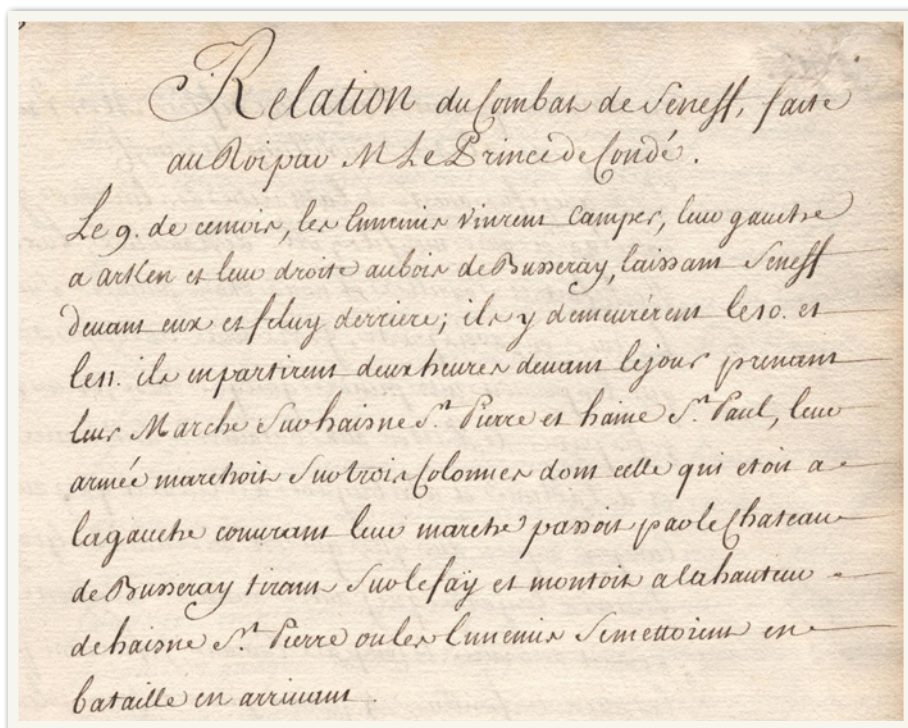 Relation du Combat de Seneff, faite
au Roi par M Le Prince de Condé.
Le 9. de ce mois, les Ennemis vinrent Camper, leur gauche
a arKen et leur droite au bois de Busseray, laissant Seneff
devant eux et feluy derriere; ils y demeurérent le 10. et
le 11. ils en partirent deux heures devant le jour prenant
leur Marche Sur haisne St. Pierre et haine St. Paul, leur
armée marchoit Sur trois Colonnes dont celle qui etoit a
la gauche couvrant leur marche passoit par le Chateau
de Busseray tirant Sur le faÿ et montoit a la hauteur
de haisne St. Pierre ou les Ennemis Se mettoient en
bataille en arrivant.